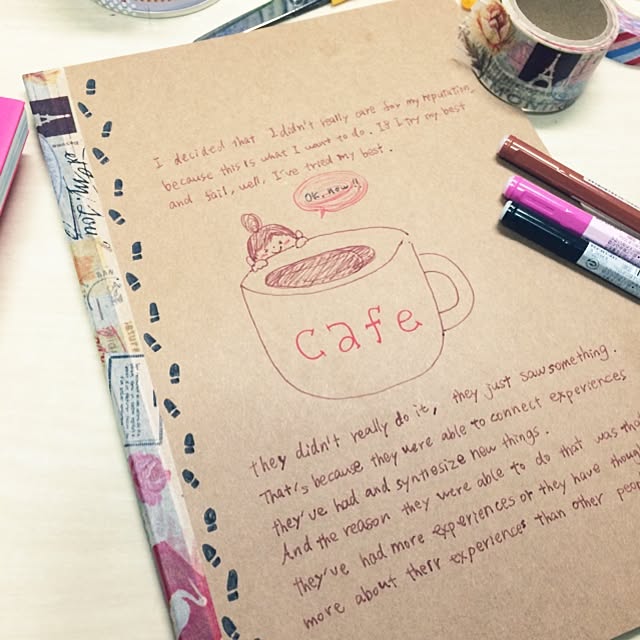 I decided that I didn't really care for my reputation
because this is what I want to do. If I try my best
and fail, well, I've tried my best.
OK, now!!
cafe
they didn't really do it, they just saw something.
That's because they were able to connect experiences
they've had and synthesize new things.
And the reason they were able to do that was that
they've had more experiences or they have though
more about their experiences than other peop